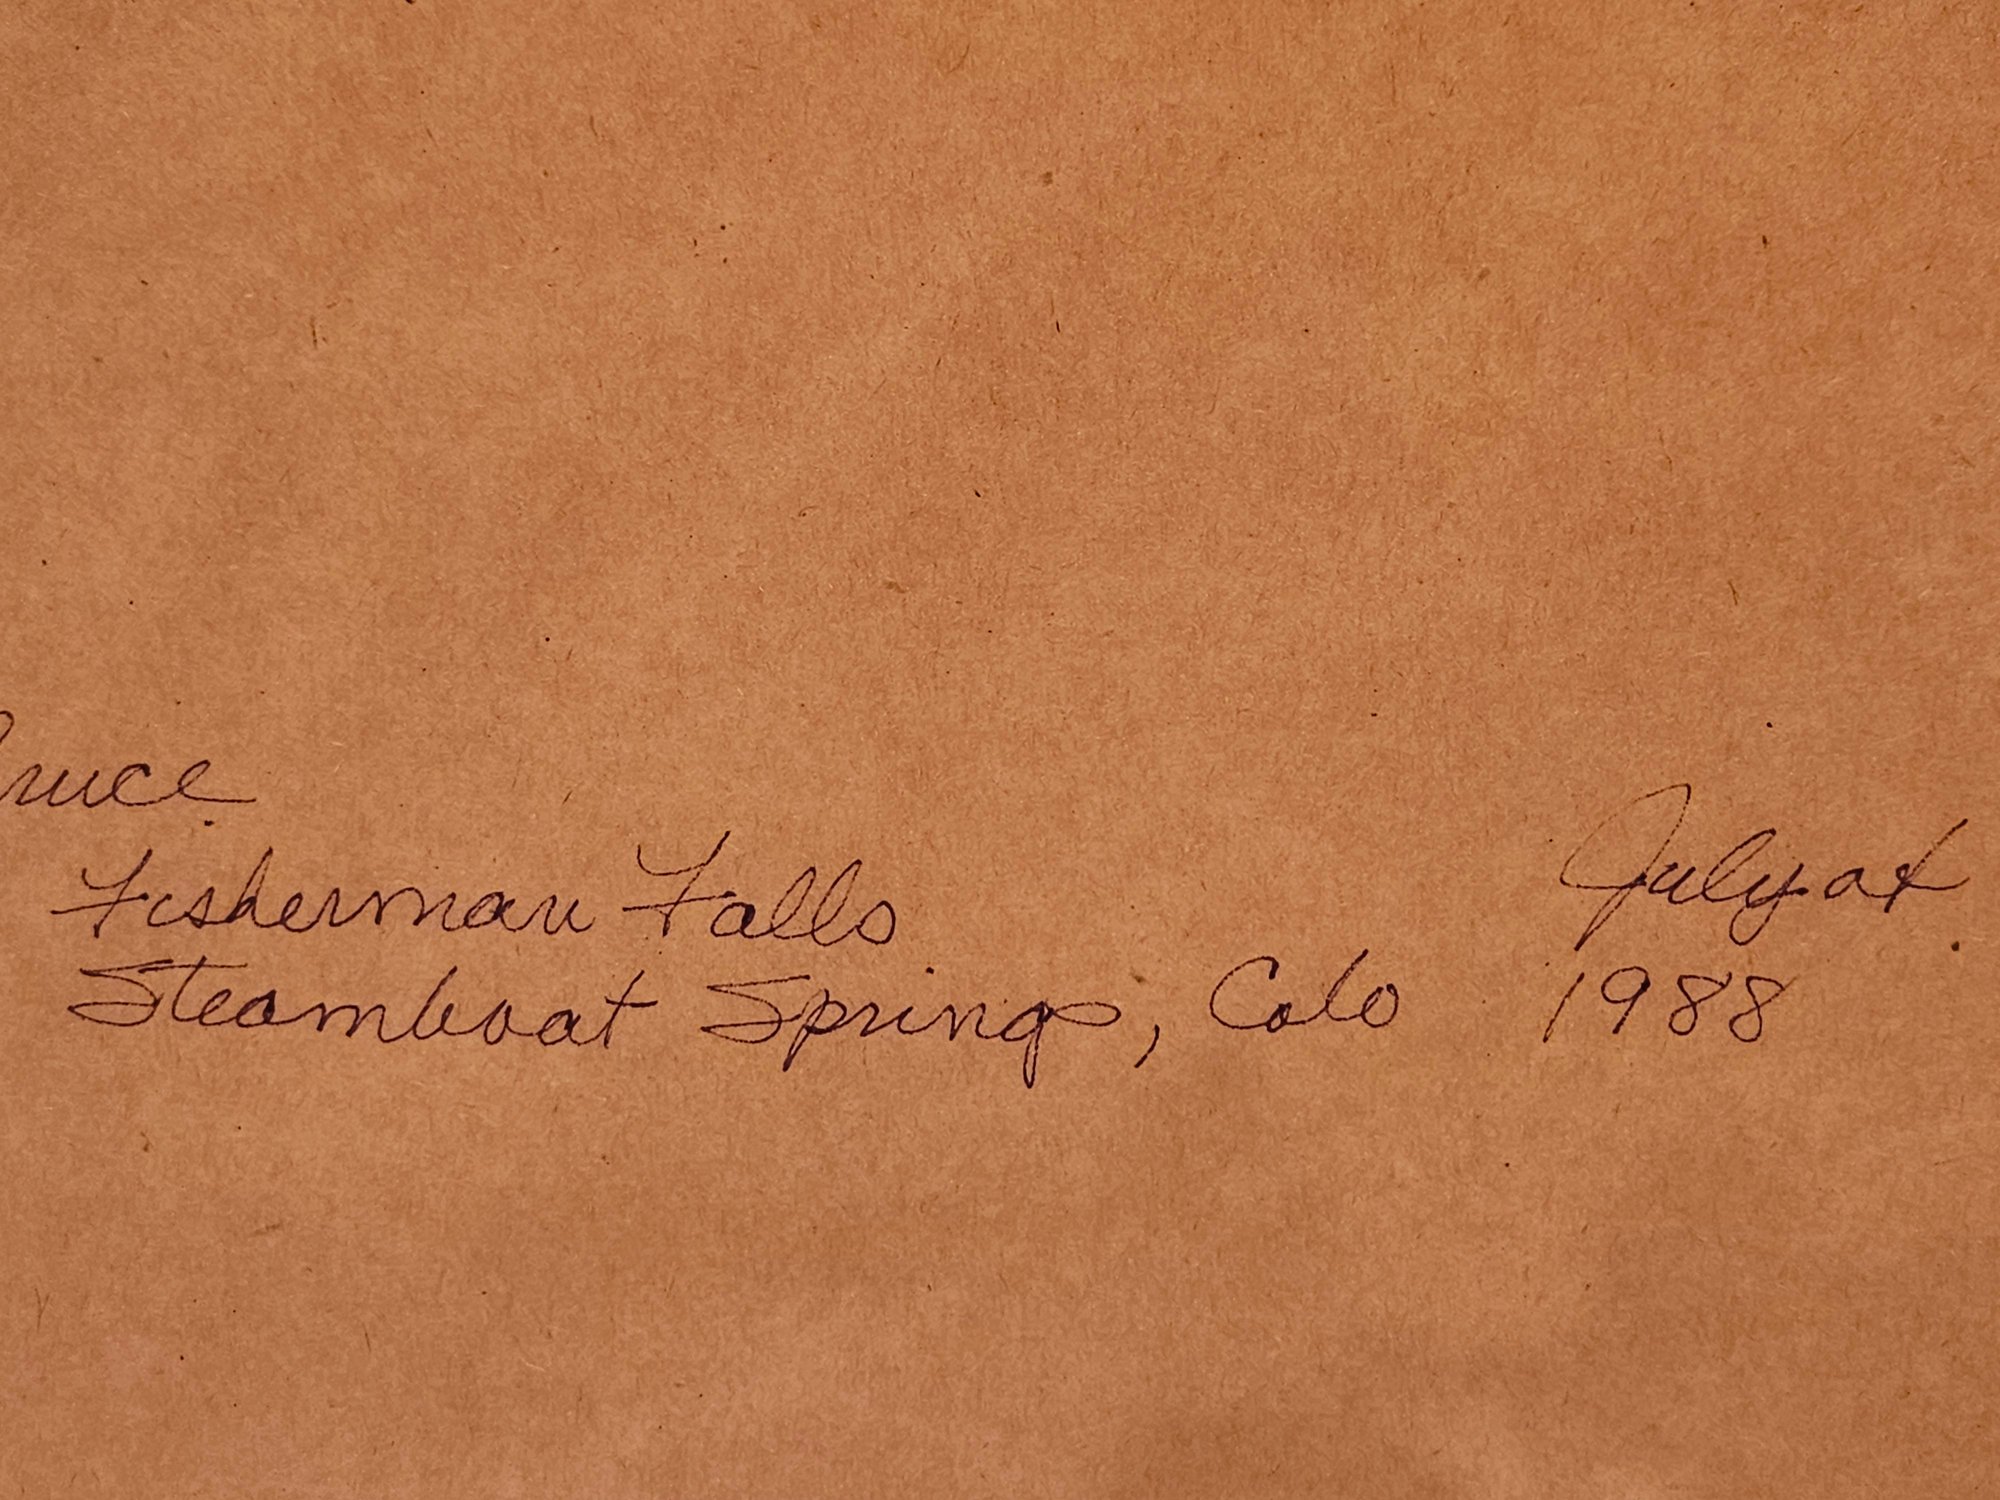 ruce
Fisherman Falls July at
Steamboat Springs, Colo 1988